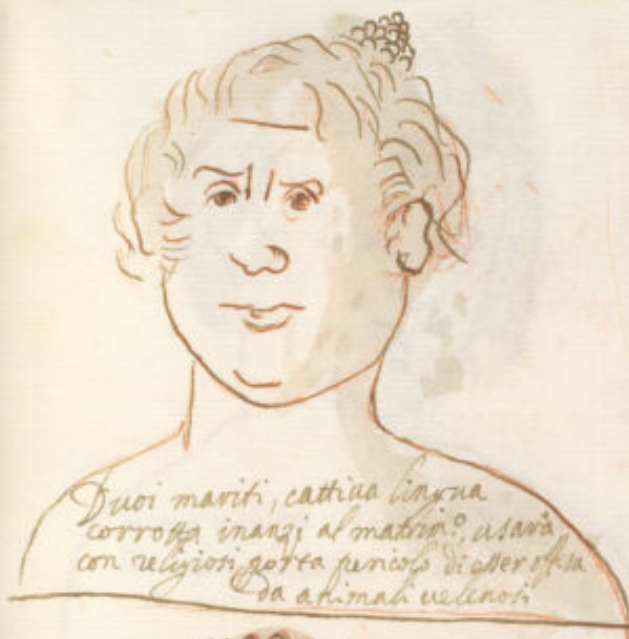 Duoi mariti, cattiua lingua
corrotta inanzi al matrim.º, usarà
con religiosi, porta pericolo di esser offesa
da animali uelenosi